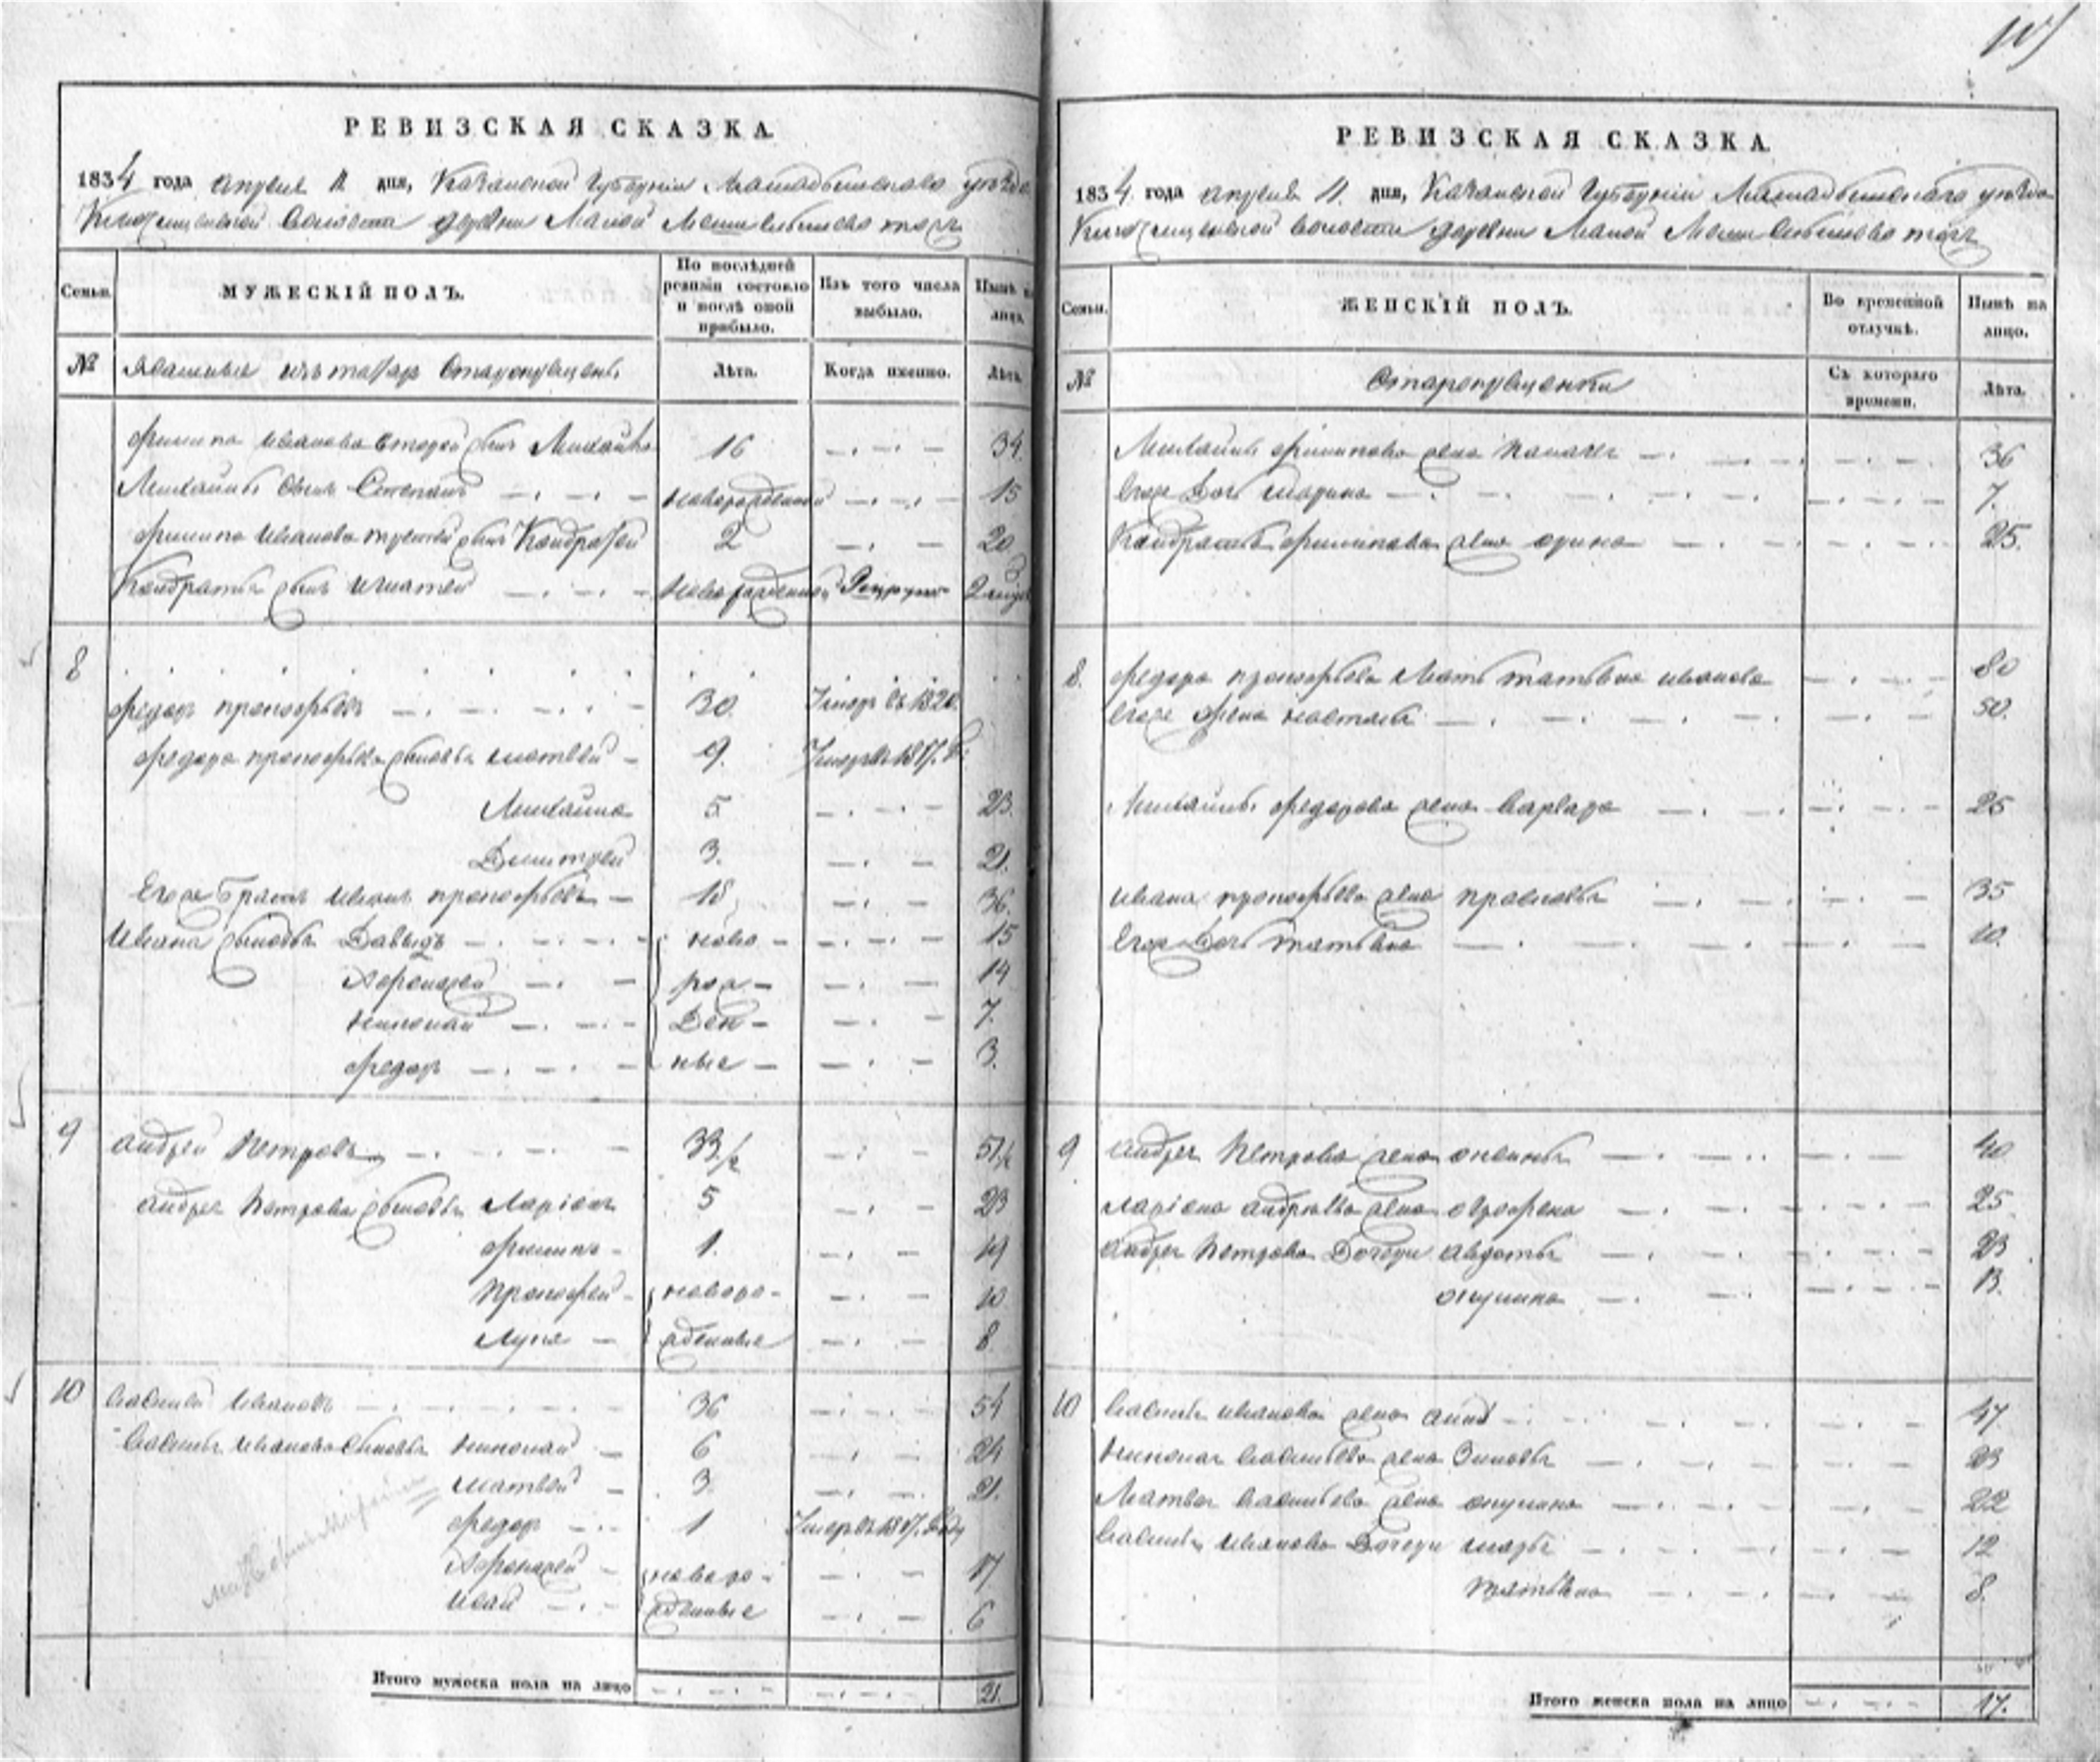 107
РЕВИЗСКАЯ СКАЗКА
1834 года апреля 11 дня, Казанской Губернiи Мамадышскаго уезда
волости деревни Малой тожъ
Семьи.
МУЖЕСКIЙ ПОЛЪ.
По послѣдней ревизiи состояло и послѣ оной прибыло.
Изъ того числа выбыло.
Нынѣ на лицо.
№
Ясашные изъ татаръ Старокрещены
Лѣта.
Когда именно.
Лѣта.
Филипа Иванова второй сынъ Михайла 16 34.
Михайлы сынъ Степанъ новорожденной 15
Филипа Иванова третей сынъ Кондратей 2 20
Кондратья сынъ Игнатей новорожденной
8
Федоръ Прокофьевъ 30. Умеръ въ 1826.
Федора Прокофьева сыновья Матвей 9. Умеръ въ 1817.
Михайла 5 23.
Дмитрей 3. 21.
Его братъ Иванъ Прокофьевъ 18 36.
Ивана сыновья Давыдъ ново 15
Афонасей рож 14
Николай ден 7.
Федоръ ные 3.
9 Андрей Петровъ 33 1/2 51 1/2
Андрея Петрова сыновья Ларiонъ 5 23
Филипъ 1. 19
Прокофей новоро 10
Лука жденные 8
10 Василей Ивановъ 36 54
Василья Иванова сыновья Николай 6 24
Матвей 3 21.
Федоръ 1 Умеръ въ 1817. году
Афонасей новоро 17
Иван жденные 6
Итого мужеска пола на лицо 21.
РЕВИЗСКАЯ СКАЗКА
1834 года апреля 11 дня, Казанской Губернiи Мамадышскаго уезда
волости деревни Малой тожъ
Семьи.
ЖЕНСКIЙ ПОЛЪ.
Во временной отлучкѣ.
Нынѣ на лицо.
№
Старокрещенки
Съ котораго времени.
Лѣта.
Михайлы Филипова жена 36
Его дочь Марина 7.
Кондратья Филипова жена Орина 25.
8. Федора Прокофьева мать Татьяна Иванова 80
Его жена Настасья 50.
Михайлы Федорова жена Варвара 25
Ивана Прокофьева жена Прасковья 35
Его дочь Татьяна 10.
9 Андрея Петрова жена Аксинья 40
Ларiона Андреева жена Офрофена 25
Андрея Петрова дочери Авдотья 23
Окулина 13.
10 Василья Иванова жена Анна 47
Николая Васильева жена Зиновья 23
Матвея Васильева жена Окулина 22
Василья Иванова дочери Марья 12
Татьяна 8.
Итого женска пола на лицо 17.